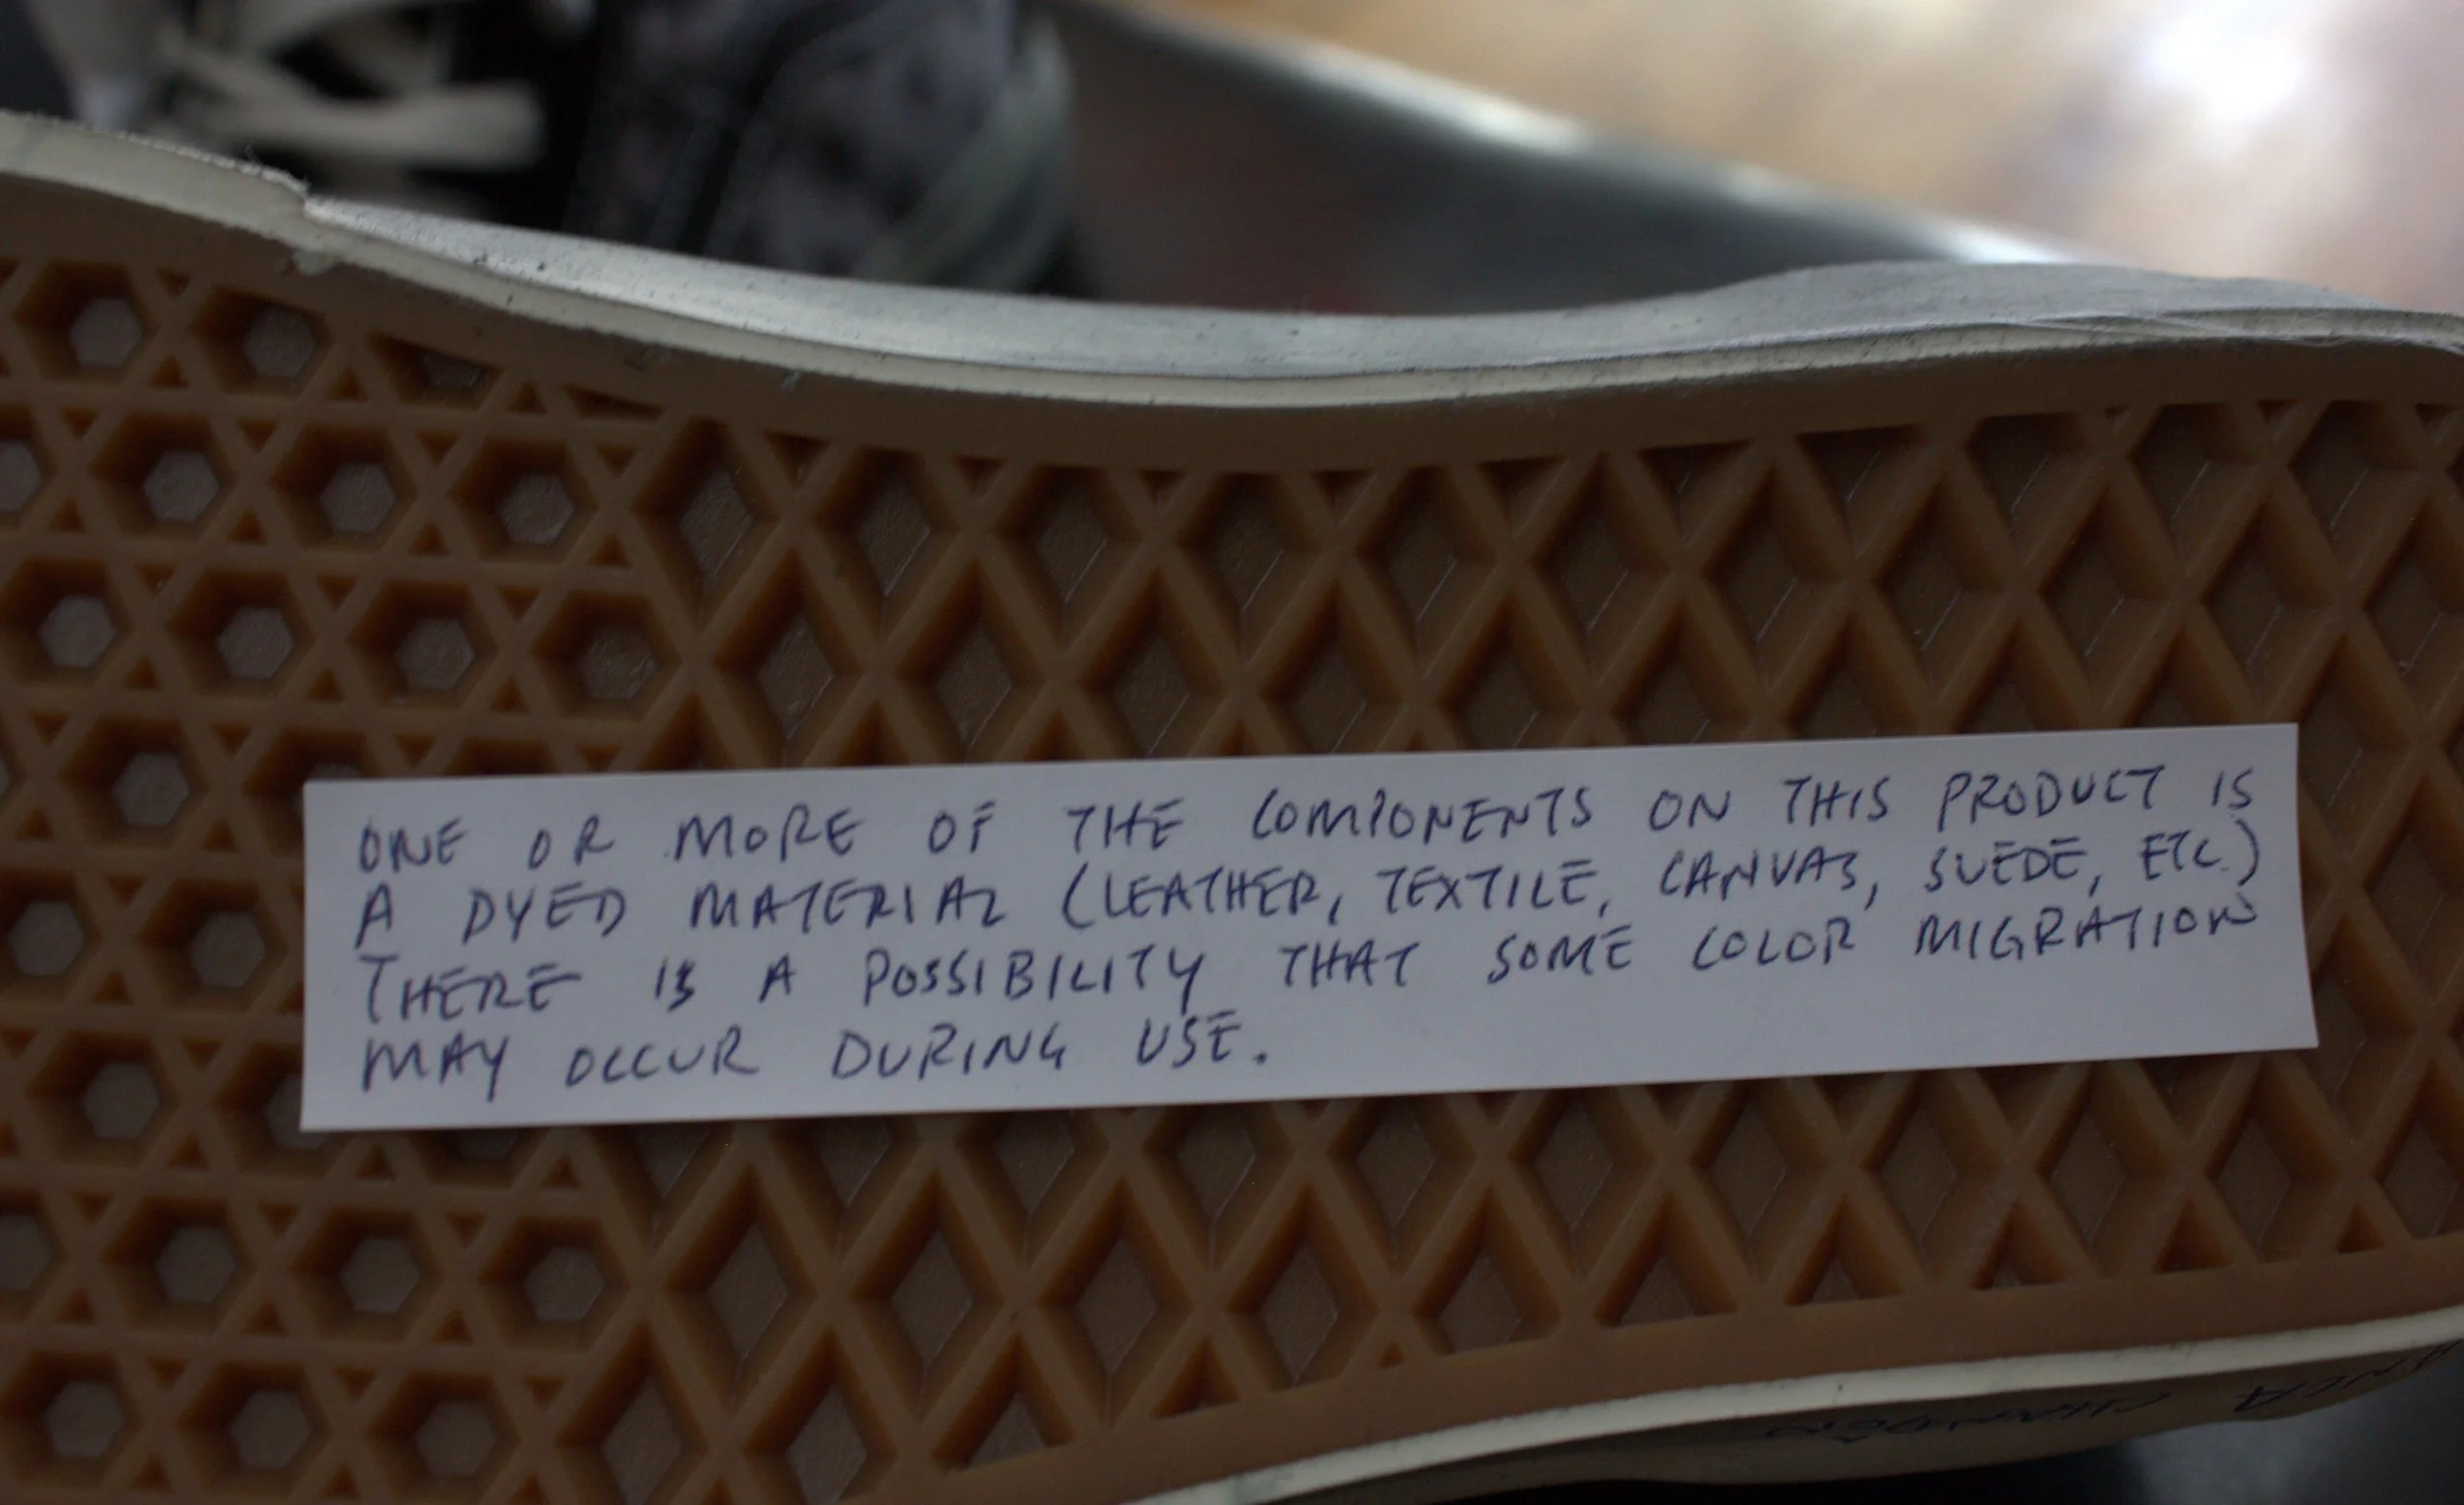 ONE OR MORE OF THE COMPONENTS ON THIS PRODUCT IS
A DYED MATERIAL (LEATHER, TEXTILE, CANVAS, SUEDE, ETC.)
THERE IS A POSSIBILITY THAT SOME COLOR MIGRATION
MAY OCCUR DURING USE.